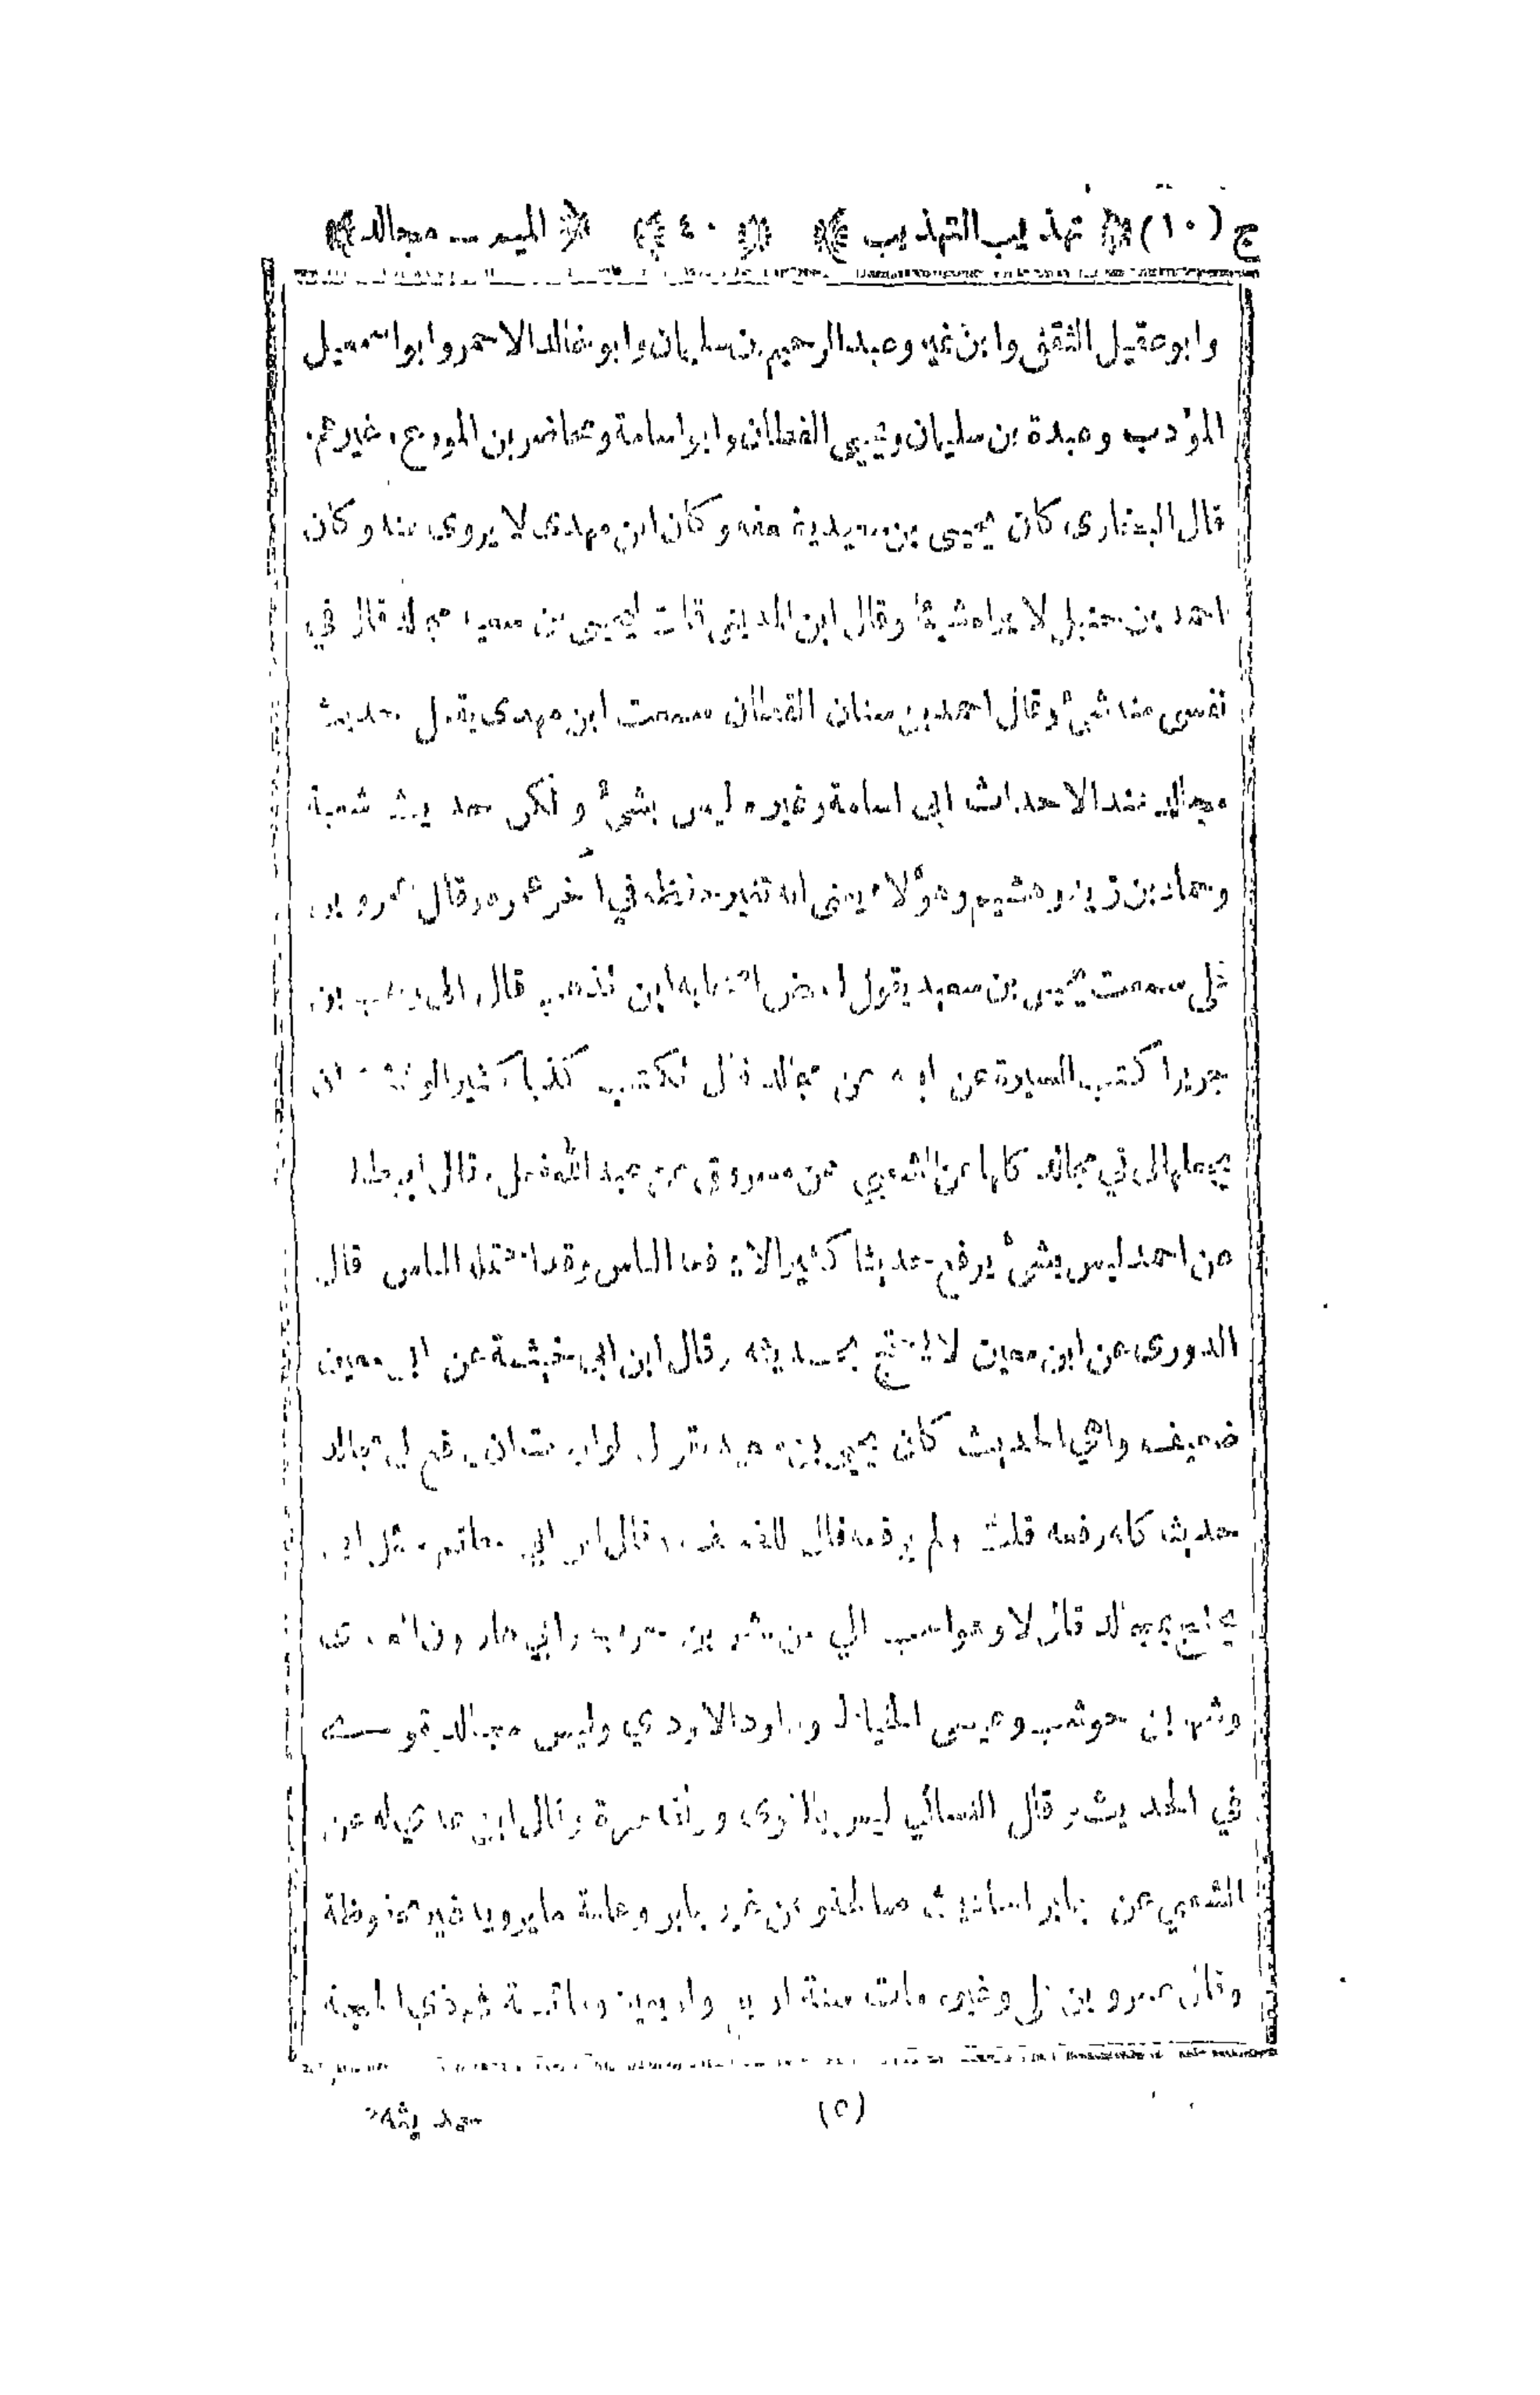 ج (١٠) تهذيب التهذيب ٤٠ الميم – مجالد
وابو عقيل الثقفي وابن نمير وعبدالرحيم بن سليمان وابو خالد الاحمر وابو اسمعيل
المؤدب وعبدة بن سليمان ويحيى القطان وابو اسامة ومحاضر بن المورع وغيرهم
قال البخاري كان يحيى بن سعيد يضعفه وكان ابن مهدى لا يروى عنه وكان
احمد بن حنبل لا يراه شيئا وقال ابن المديني قلت ليحيى بن سعيد مجالد قال في
نفسى منه شئ وقال احمد بن سنان القطان سمعت ابن مهدى يقول حديث
مجالد عند الاحداث ابى اسامة وغيره ليس بشئ ولكن حديث شعبة
وحماد بن زيد وهشيم وهؤلاء يعنى انه تغير حفظه في آخر عمره وقال عمرو بن
على سمعت يحيى بن سعيد يقول لبعض اصحابه اين تذهب قال الى وهب بن
جرير اكتب السيرة عن ابيه عن مجالد قال تكتب كذبا كثيرا لو شئت ان
يجعلها لى في مجالد كلها عن الشعبي عن مسروق عن عبد الله فعل وقال ابو طالب
عن احمد ليس بشئ يرفع حديثا كثيرا لا يرفعه الناس وقد احتمله الناس قال
الدورى عن ابن معين لا يحتج بحديثه وقال ابن ابي خيثمة عن ابن معين
ضعيف واهي الحديث كان يحيى بن سعيد يقول لو اردت ان يرفع لى مجالد
حديثه كله رفعه قلت ولم يرفعه قال للضعف وقال ابن ابي حاتم سئل ابي
يحتج بمجالد قال لا وهو احب الي من بشر بن حرب وابي هارون العبدى
وشهر بن حوشب وعيسى الخياط وداود الاودي وليس مجالد بقوى
في الحديث وقال النسائي ليس بالقوى ووثقه مرة وقال ابن عدي له عن
الشعبي عن جابر احاديث صالحة وعن غير جابر وعامة ما يرويه غير محفوظة
وقال عمرو بن علي وغيره مات سنة اربع واربعين ومائة في ذي الحجة
(٥) حديثه